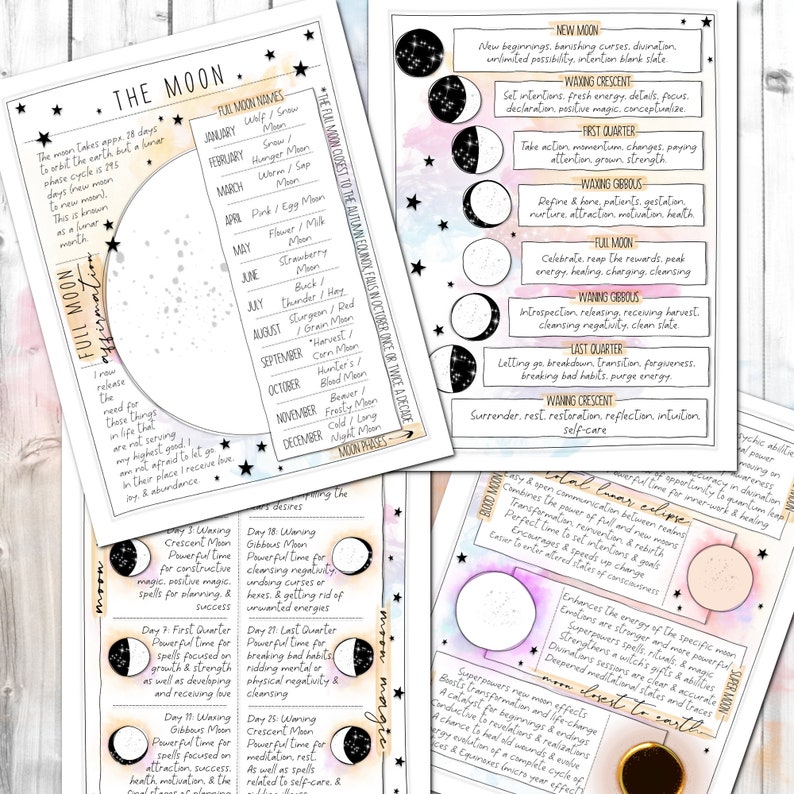 THE MOON
The moon takes appx. 28 days
to orbit the earth, but a lunar
phase cycle is 29.5
days (new moon
to new moon).
This is known
as a lunar
month.
FULL MOON
affirmation
I now
release
the
need for
those things
in life that
are not serving
my highest good. I
am not afraid to let go.
In their place I receive love,
joy, & abundance.
FULL MOON NAMES
JANUARY Wolf / Snow
Moon
FEBRUARY Snow /
Hunger Moon
MARCH Worm / Sap
Moon
APRIL Pink / Egg Moon
MAY Flower / Milk
Moon
JUNE Strawberry
Moon
JULY Buck /
thunder / Hay
AUGUST Sturgeon / Red
/ Grain Moon
SEPTEMBER *Harvest /
Corn Moon
OCTOBER Hunter's /
Blood Moon
NOVEMBER Beaver /
Frosty Moon
DECEMBER Cold / Long
Night Moon
MOON PHASES
*THE FULL MOON CLOSEST TO THE AUTUMN EQUINOX, FALLS IN OCTOBER ONCE OR TWICE A DECADE
NEW MOON
New beginnings, banishing curses, divination,
unlimited possibility, intention blank slate.
WAXING CRESCENT
Set intentions, fresh energy, details, focus,
declaration, positive magic, conceptualize.
FIRST QUARTER
Take action, momentum, changes, paying
attention, grown, strength.
WAXING GIBBOUS
Refine & hone, patients, gestation,
nurture, attraction, motivation, health.
FULL MOON
Celebrate, reap the rewards, peak
energy, healing, charging, cleansing
WANING GIBBOUS
Introspection, releasing, receiving harvest,
cleansing negativity, clean slate.
LAST QUARTER
Letting go, breakdown, transition, forgiveness,
breaking bad habits, purge energy.
WANING CRESCENT
Surrender, rest, restoration, reflection, intuition,
self-care
desires
fulfilling the
moon
Day 3: Waxing
Crescent Moon
Powerful time
for constructive
magic, positive magic,
spells for planning, &
success
Day 7: First Quarter
Powerful time for
spells focused on
growth & strength
as well as developing
and receiving love
Day 11: Waxing
Gibbous Moon
Powerful time for
spells focused on
attraction, success,
health, motivation, & the
final stages of planning
Day 18: Waning
Gibbous Moon
Powerful time for
cleansing negativity,
undoing curses or
hexes, & getting rid of
unwanted energies
Day 21: Last Quarter
Powerful time for
breaking bad habits,
ridding mental or
physical negativity &
cleansing
Day 25: Waning
Crescent Moon
Powerful time for
meditation, rest.
As well as spells
related to self-care, &
ridding illness
moon magic
psychic abilities
power
moving on
accuracy in divination
of opportunity to quantum leap
Powerful time for inner-work & healing
BLOOD MOON
total lunar eclipse
Easy & open communication between realms
Combines the power of full and new moons
Transformation, reinvention, & rebirth
Perfect time to set intentions & goals
Encourages & speeds up change
Easier to enter altered states of consciousness
Enhances the energy of the specific moon
Emotions are stronger and more powerful
Superpowers spells, rituals, & magic
Strengthens a witch's gifts & abilities
Divinations sessions are clear & accurate
Deepened meditational states and traces
SUPER MOON
moon closest to earth
Superpowers new moon effects
Boosts transformation and life-change
A catalyst for beginnings & endings
Conductive to revelations & realizations
A chance to heal old wounds & evolve
energy evolution of a complete cycle of
& Equinoxes (micro year effect)